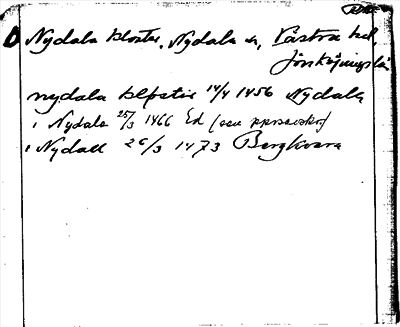 Nydala kloster, Nydala sn, Västra hd,
Jönköpings län
nydala closter 14/4 1456 Nydala
i Nydala 25/3 1466 Ed (
i Nydall 26/3 1473 Bergkvara